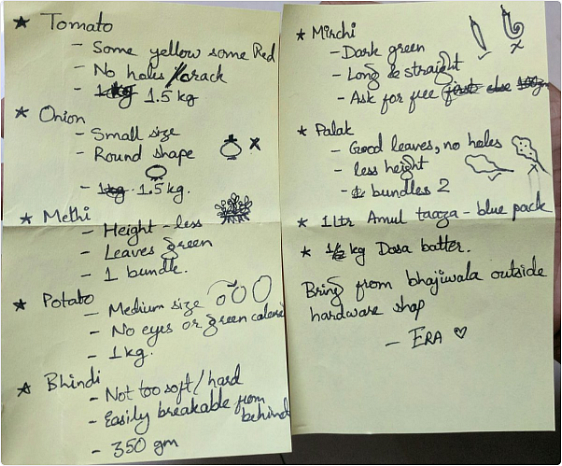 ★ Tomato
- Some yellow some Red
- No holes / crack
- 1.5 kg
★ Onion
- Small size
- Round shape
- 1kg. 1.5 kg.
★ Methi
- Height - less
- Leaves green
- 1 bundle.
★ Potato
- Medium size
- No eyes or green
- 1 kg.
★ Bhindi
- Not too soft / hard
- Easily breakable from
behind
- 350 gm
★ Mirchi
- Dark green
- Long & straight
- Ask for free
★ Palak
- Good leaves, no holes
- less height
- bundles 2
★ 1 ltr Amul taaza - blue pack
★ kg Dosa batter.
Bring from bhajiwala outside
hardware shop
- ERA ♡